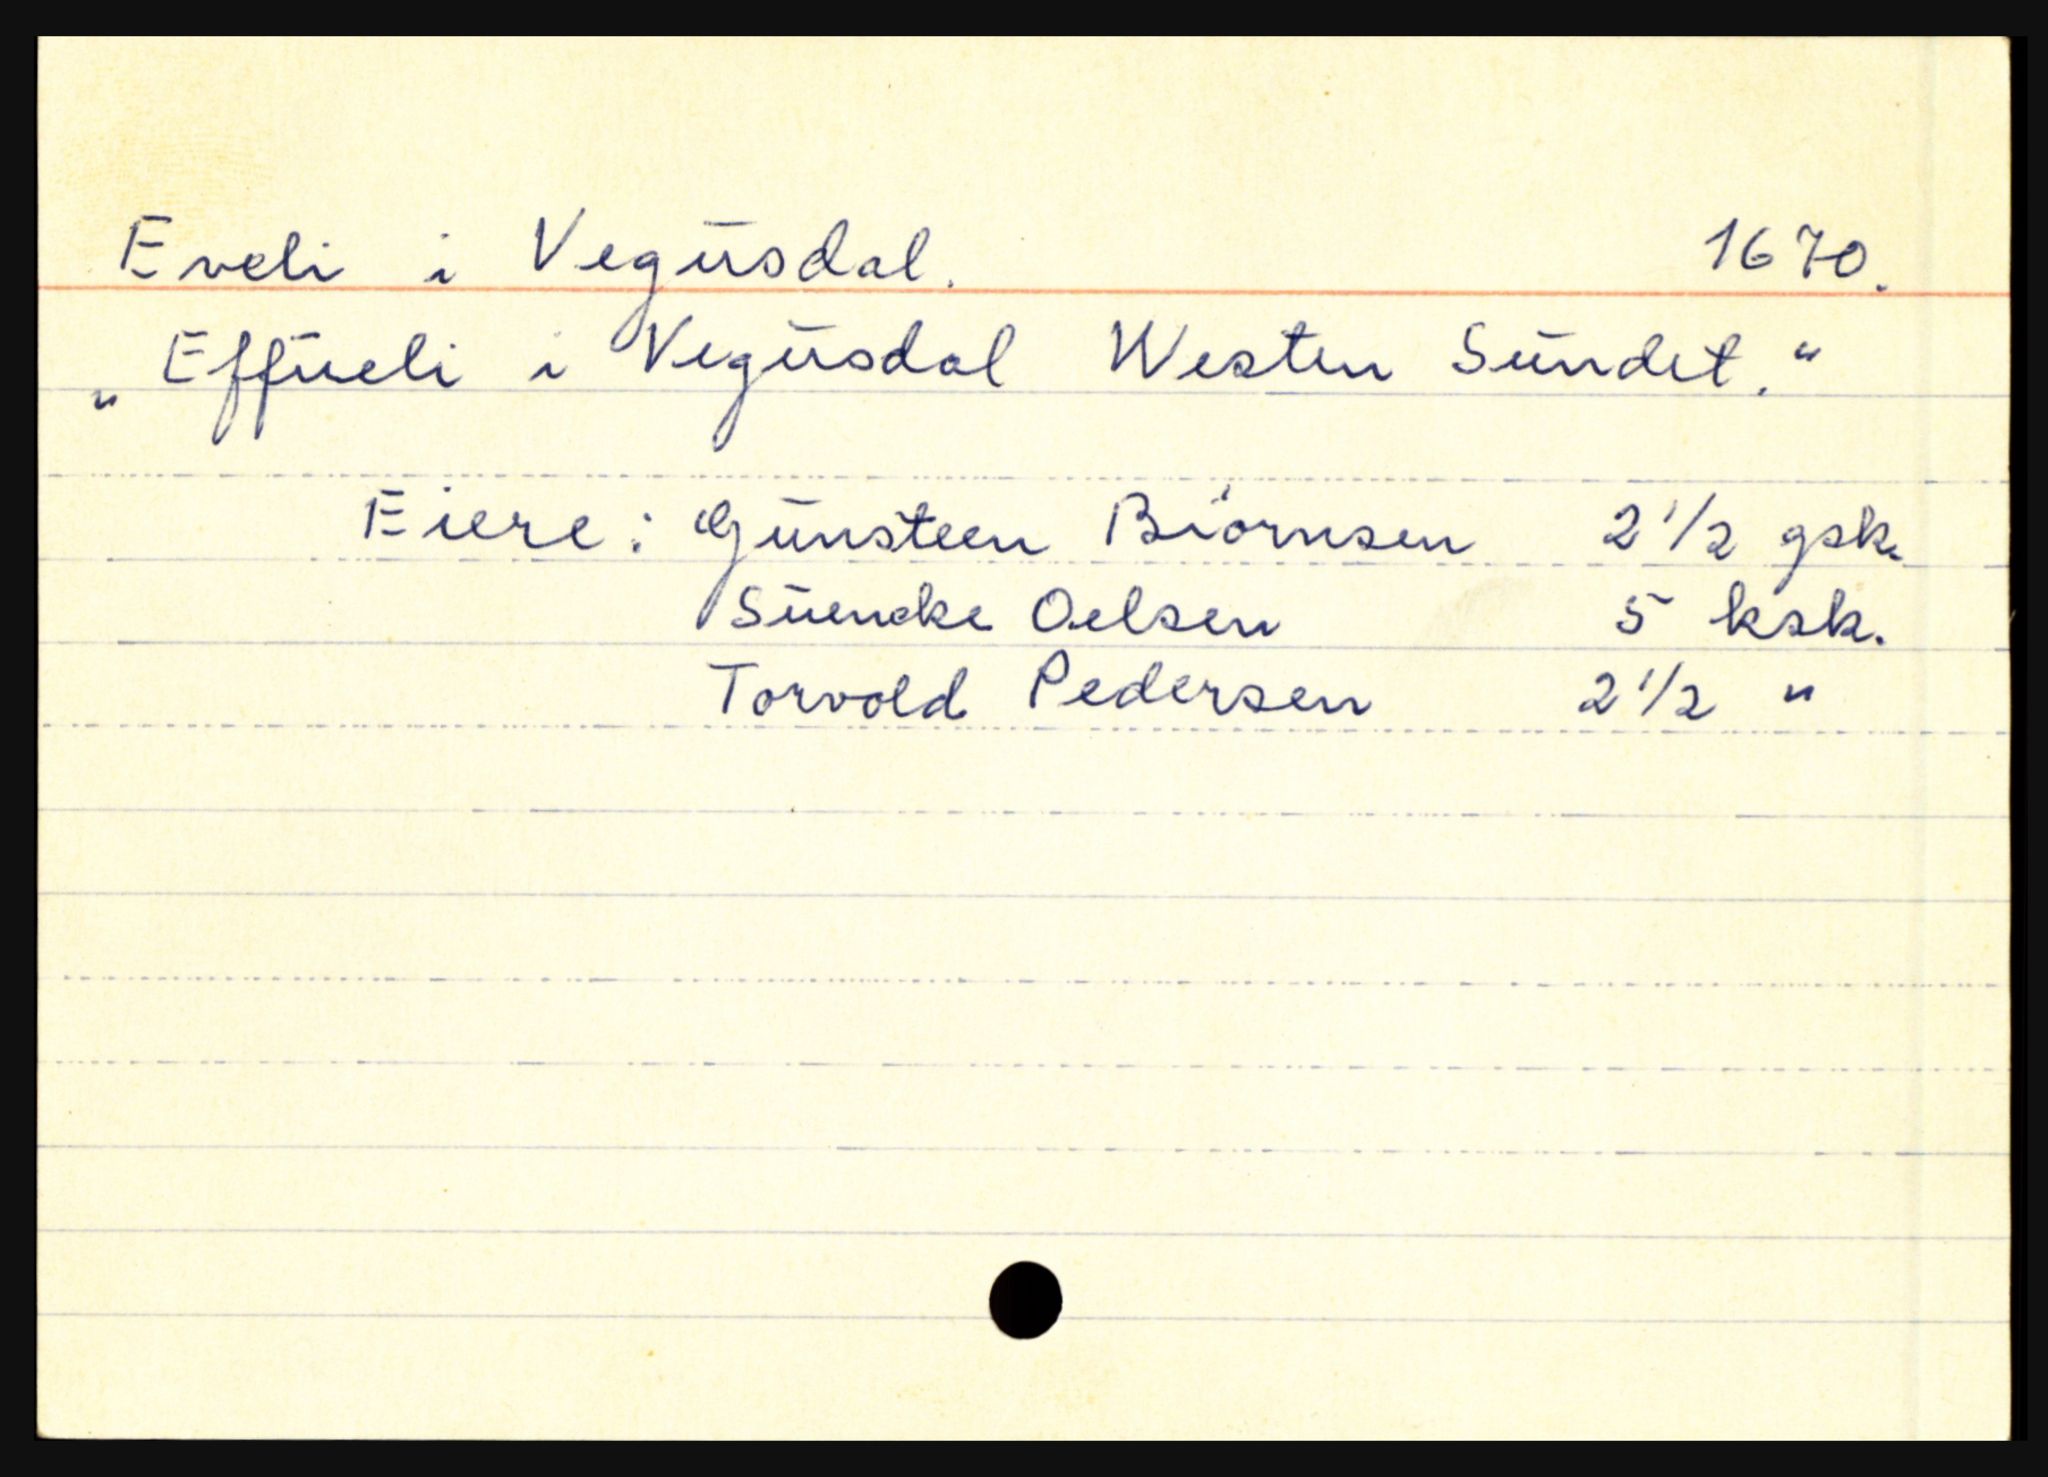 Eveli i Vegūsdal. 1670.
„Effūeli i Vegūsdal Westen Sūndet.“
Eiere: Gūnsteen Biórnsen 2 1/2 gsk.
Sūencke Oelsen 5 ksk.
Torvold Pedersen 2 1/2 "